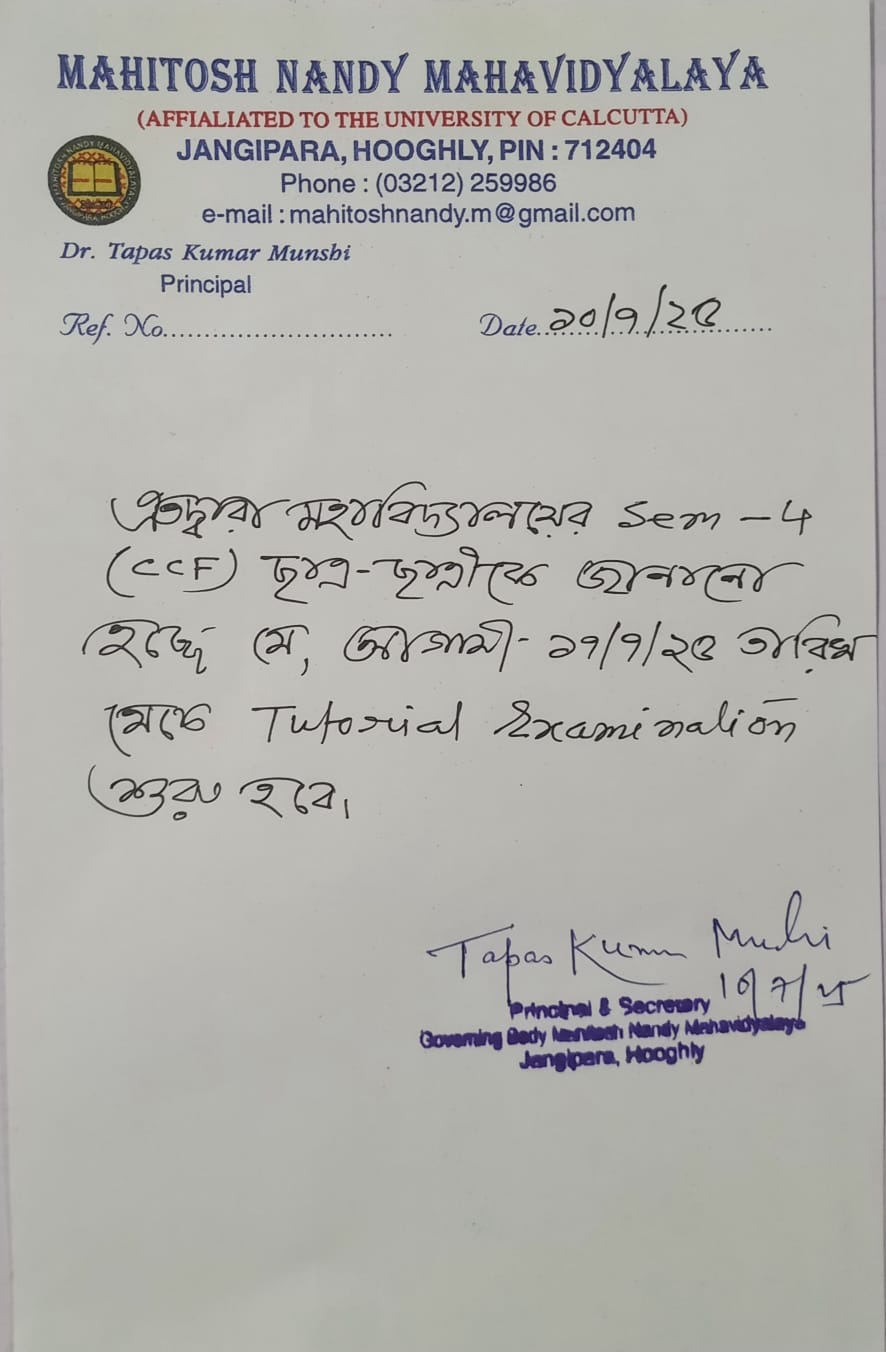 MAHITOSH NANDY MAHAVIDYALAYA
(AFFIALIATED TO THE UNIVERSITY OF CALCUTTA)
JANGIPARA, HOOGHLY, PIN : 712404
Phone : (03212) 259986
e-mail : mahitoshnandy.m@gmail.com
Dr. Tapas Kumar Munshi
Principal
Ref. No............................ Date..১০/৭/২৫........
এতদ্বারা মহাবিদ্যালয়ের Sem - 4
(CCF) ছাত্র-ছাত্রীকে জানানো
হচ্ছে যে, আগামী- ১৭/৭/২৫ তারিখ
থেকে Tutorial Examination
শুরু হবে।
Tapas Kumar Munshi
10/7/25
Principal & Secretary
Governing Body Mahitosh Nandy Mahavidyalaya
Jangipara, Hooghly